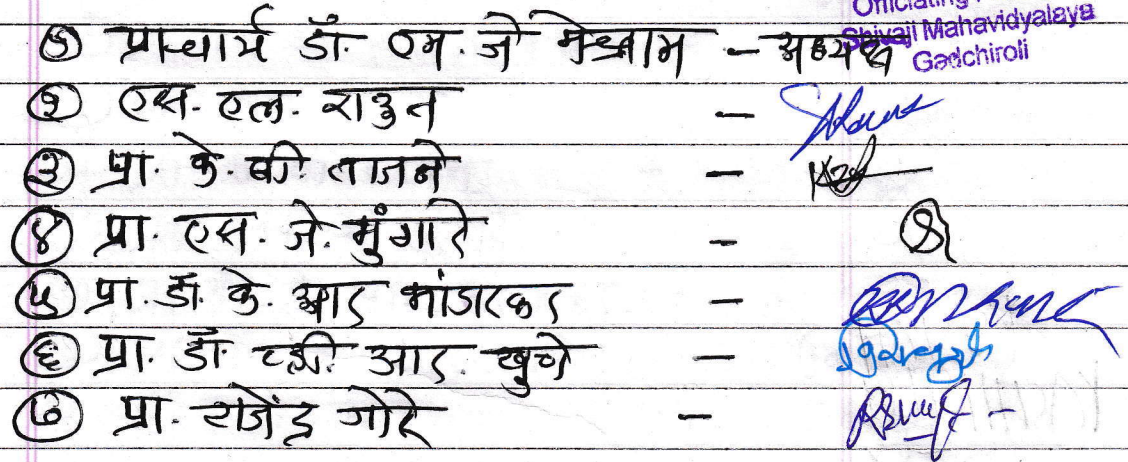 Officiating
Shivaji Mahavidyalaya
Gadchiroli
१ प्राचार्य डॉ. एम. जे मेश्राम - अध्यक्ष
२ एस. एल. राउत -
३ प्रा. के. बी. ताजने -
४ प्रा. एस. जे. मुंगारे -
५ प्रा. डॉ. के. आर भांडारकर -
६ प्रा. डॉ. व्ही. आर. खुणे -
७ प्रा. राजेंद्र गोरे -